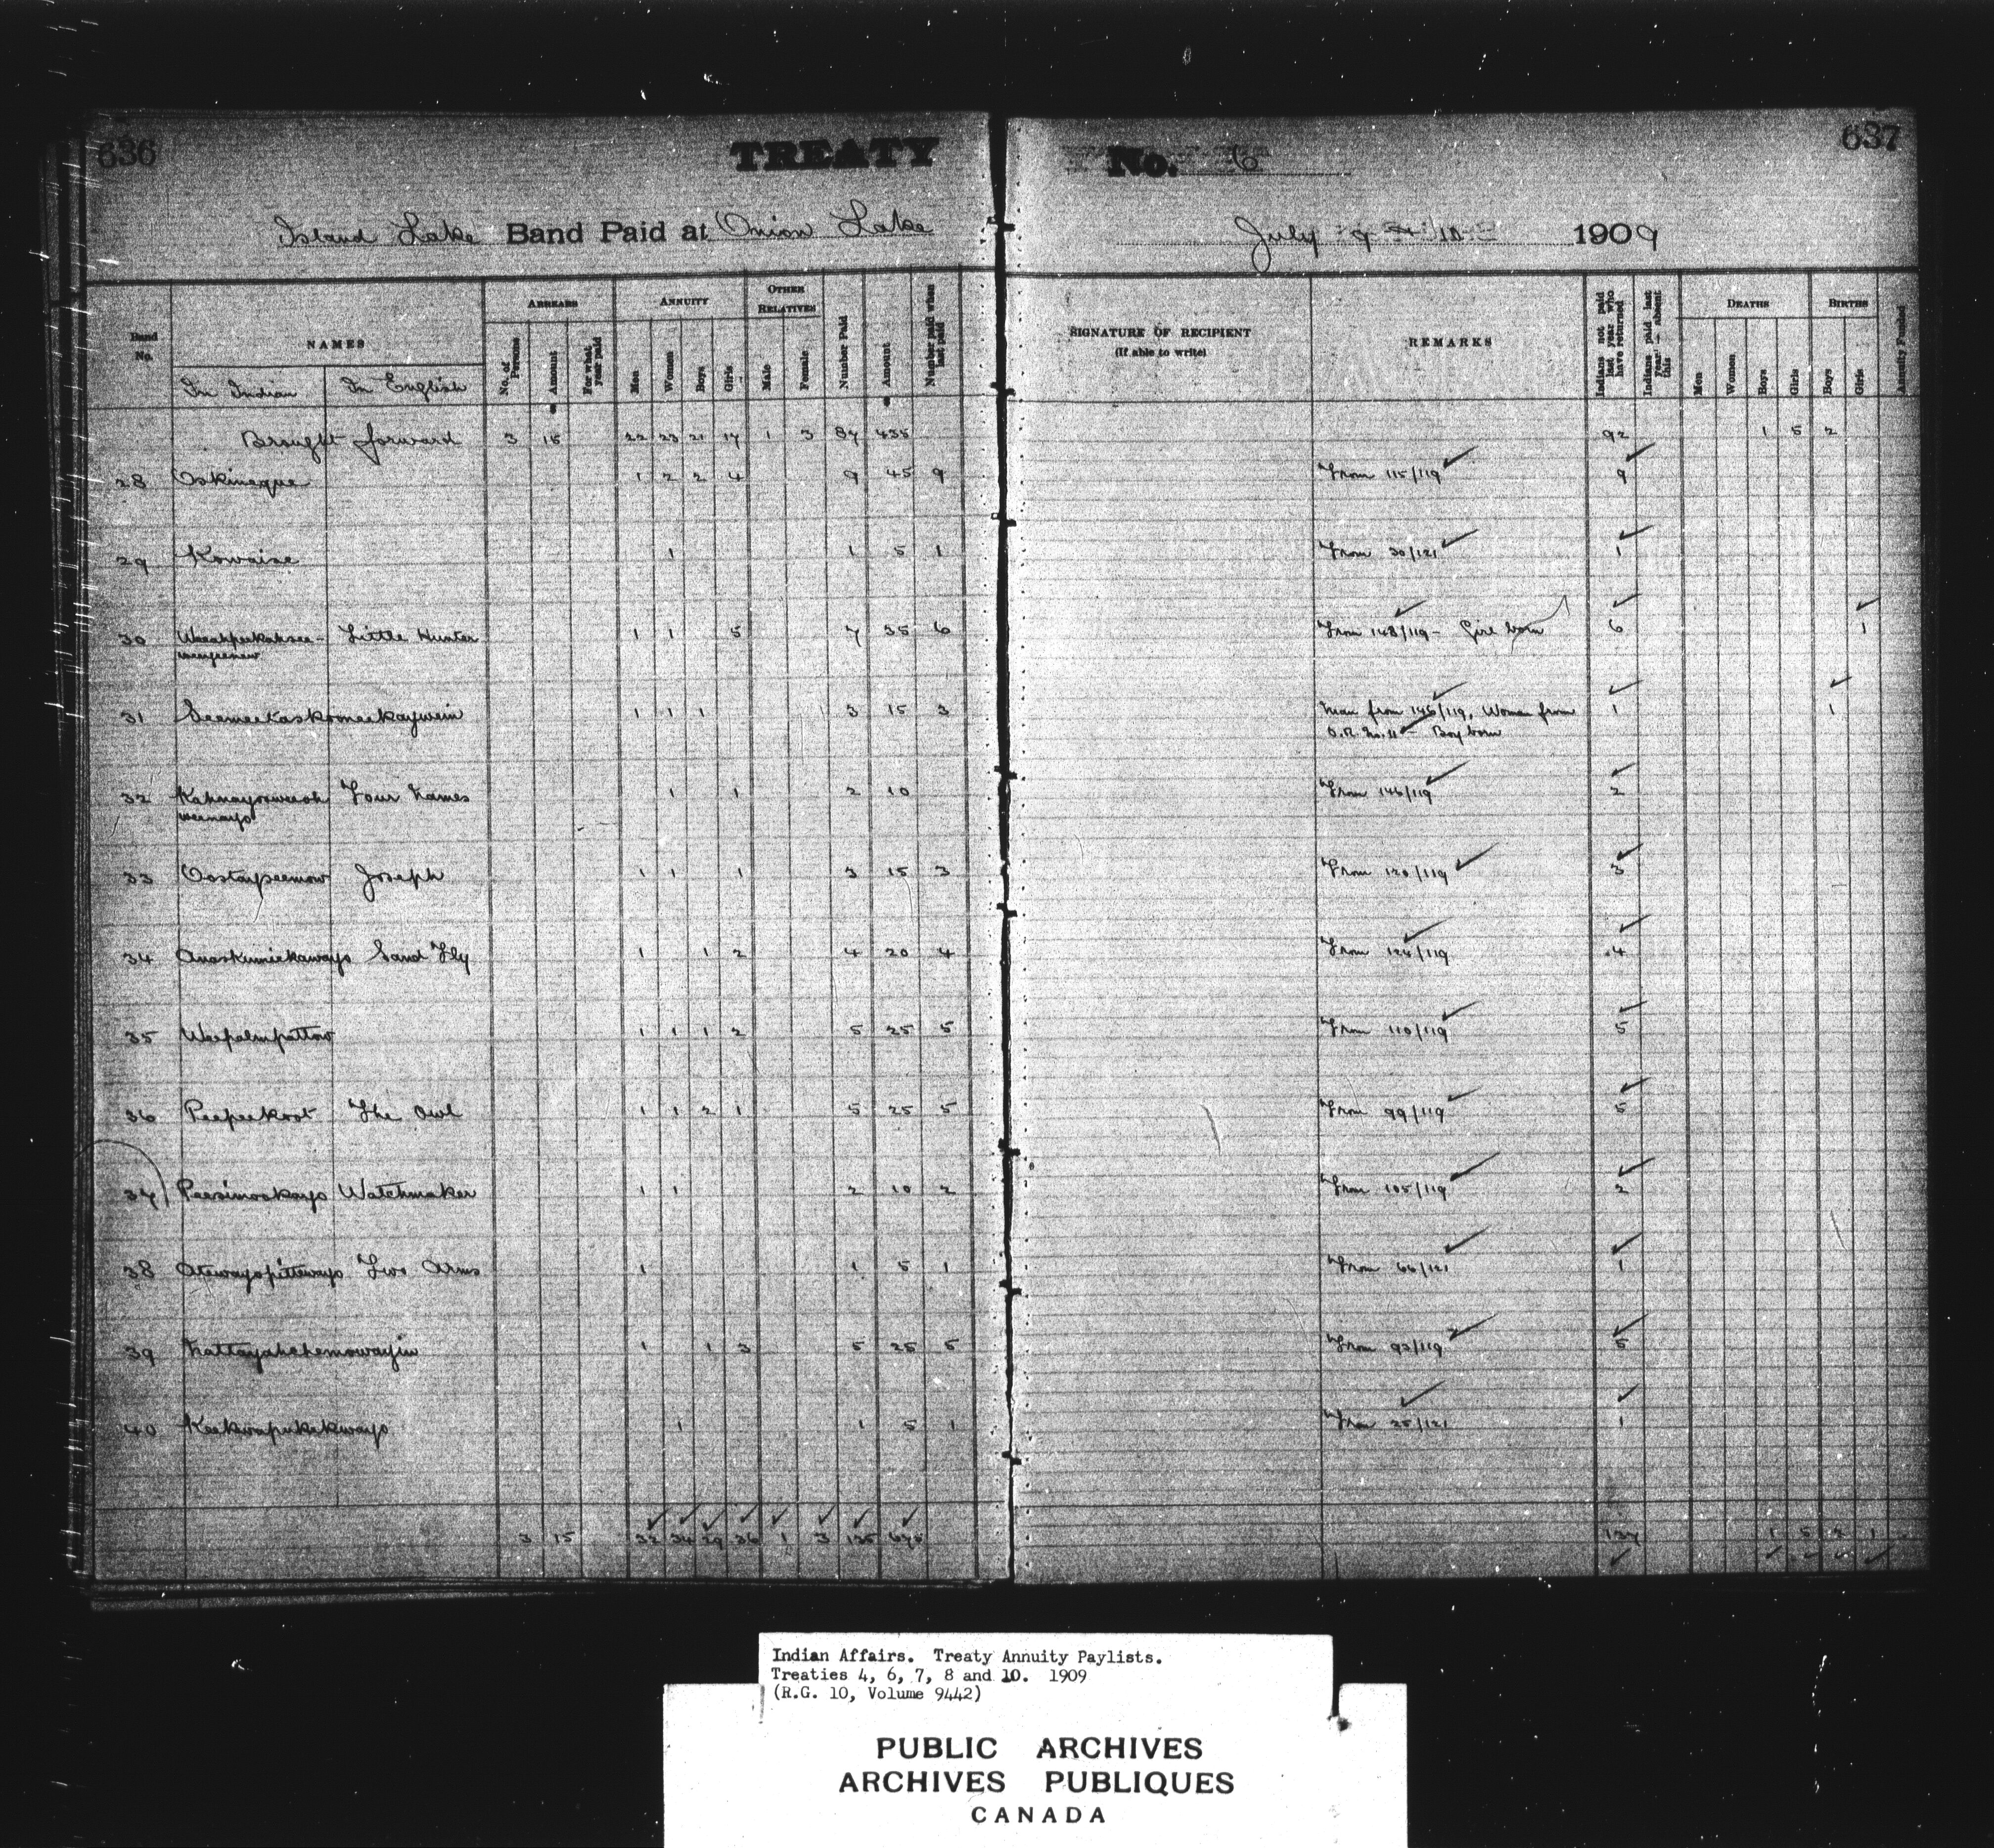 636 TREATY No. 6 637
Island Lake Band Paid at Onion Lake July 9 & 10 1909
Band No. NAMES ARREARS ANNUITY OTHER RELATIVES Number Paid Amount Number paid when last paid SIGNATURE OF RECIPIENT (If able to write) REMARKS Indians not paid last year who have returned Indians paid last year - absent this DEATHS BIRTHS Annuity Funded
In Indian In English No. of Persons Amount For what year paid Men Women Boys Girls Male Female Men Women Boys Girls Boys Girls
Brought forward 3 15 22 23 21 17 1 3 87 435 92 1 5 2
28 Oskineque 1 2 2 4 9 45 9 From 115/119 9
29 Kowaise 1 1 5 1 From 30/121 1
30 Little Hunter 1 1 5 7 35 6 From 148/119 - Girl born 6 1
31 Seemeekaskomeekaywein 1 1 1 3 15 3 Man from 146/119, Woman from 1 1
O.R. No. 11 - Boy born
32 Kahnayoweeoh Four Names 1 1 2 10 From 146/119 2
weenayo
33 Oostaypeemow Joseph 1 1 1 3 15 3 From 120/119 3
34 Anaskumiekaways Sand Fly 1 1 2 4 20 4 From 124/119 4
35 Weepalmpattow 1 1 1 2 5 25 5 From 110/119 5
36 Peepeekoot The Owl 1 1 2 1 5 25 5 From 99/119 5
37 Peesimookays Watchmaker 1 1 2 10 2 From 105/119 2
38 Atewayopittoways Two Arms 1 1 5 1 From 66/121 1
39 Nattayahchemowayin 1 1 3 5 25 5 From 92/119 5
40 Keekwapukakways 1 1 5 1 From 25/121 1
3 15 32 34 29 36 1 3 135 675 137 1 5 2 1
Indian Affairs. Treaty Annuity Paylists.
Treaties 4, 6, 7, 8 and 10. 1909
(R.G. 10, Volume 9442)
PUBLIC ARCHIVES
ARCHIVES PUBLIQUES
CANADA